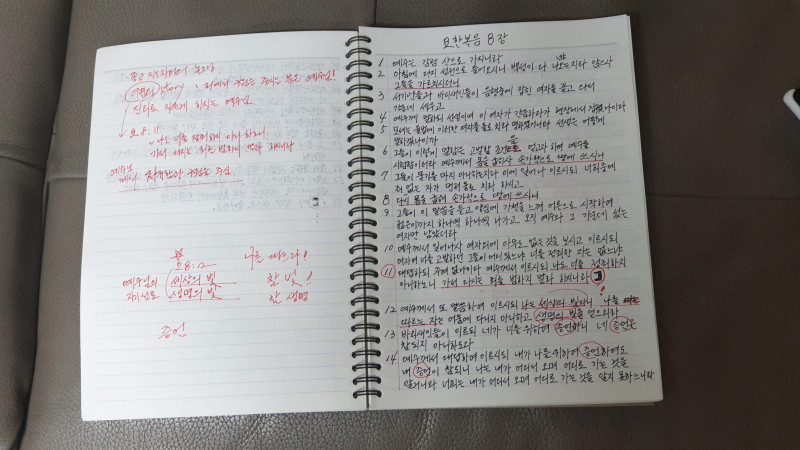 진리로 자유케 하시는 예수님.
요 8:11
나도 너를 정죄하지 아니하노니
가서 다시는 죄를 범하지 말라 하시니라
요 8:12
나를 따르라!
예수님의 세상의 빛 참 빛!
자기 선포 생명의 빛 참 생명
증언
요한복음 8장
1 예수는 감람 산으로 가시니라
2 아침에 다시 성전으로 들어오시니 백성이 다 나오는지라 앉으사
그들을 가르치시더니
3 서기관들과 바리새인들이 음행중에 잡힌 여자를 끌고 와서
가운데 세우고
4 예수께 말하되 선생이여 이 여자가 간음하다가 현장에서 잡혔나이다
5 모세는 율법에 이러한 여자를 돌로 치라 명하였거니와 선생은 어떻게
말하겠나이까
6 그들이 이렇게 말함은 고발할 조건을 얻고자 하여 예수를
시험함이러라 예수께서 몸을 굽히사 손가락으로 땅에 쓰시니
7 그들이 묻기를 마지 아니하는지라 이에 일어나 이르시되 너희중에
죄 없는 자가 먼저 돌로 치라 하시고
8 다시 몸을 굽혀 손가락으로 땅에 쓰시니
9 그들이 이 말씀을 듣고 양심에 가책을 느껴 어른으로 시작하여
젊은이까지 하나씩 하나씩 나가고 오직 예수와 그 가운데 섰는
여자만 남았더라
10 예수께서 일어나사 여자외에 아무도 없는 것을 보시고 이르시되
여자여 너를 고발하던 그들이 어디 있느냐 너를 정죄한 자는 없느냐
11 대답하되 주여 없나이다 예수께서 이르시되 나도 너를 정죄하지
아니하노니 가서 다시는 죄를 범하지 말라 하시니라
12 예수께서 또 말씀하여 이르시되 나는 세상의 빛이니 나를
따르는 자는 어둠에 다니지 아니하고 생명의 빛을 얻으리라
13 바리새인들이 이르되 네가 너를 위하여 증언하니 네 증언은
참되지 아니하도다
14 예수께서 대답하여 이르시되 내가 나를 위하여 증언하여도
내 증언이 참되니 나는 내가 어디서 오며 어디로 가는 것을
알거니와 너희는 내가 어디서 오며 어디로 가는 것을 알지 못하느니라